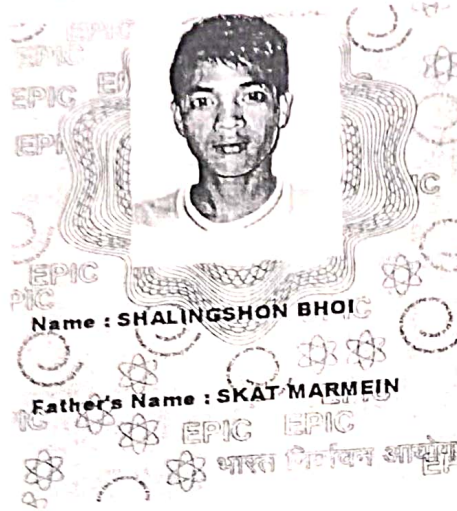 EPIC
EPIC
EPIC
EPIC
EPIC
Name : SHALINGSHON BHOI
Father's Name : SKAT MARMEIN
EPIC EPIC
भारत निर्वाचन आयोग